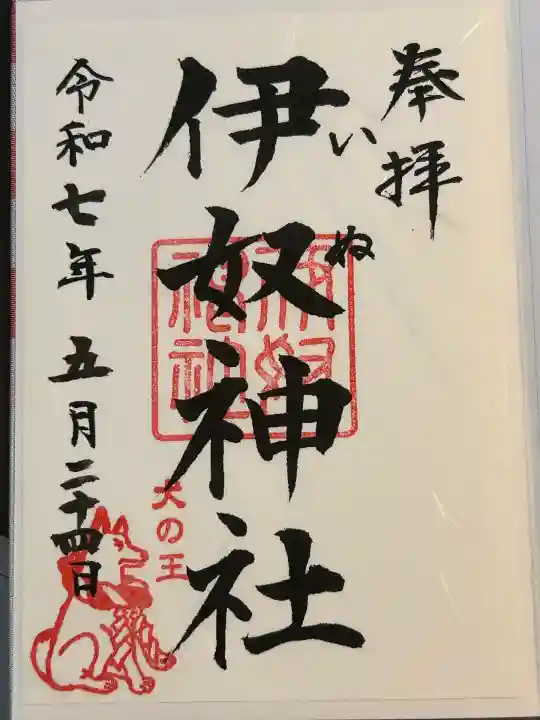 奉拝
伊奴神社
いぬ
令和七年 五月二十四日
犬の王